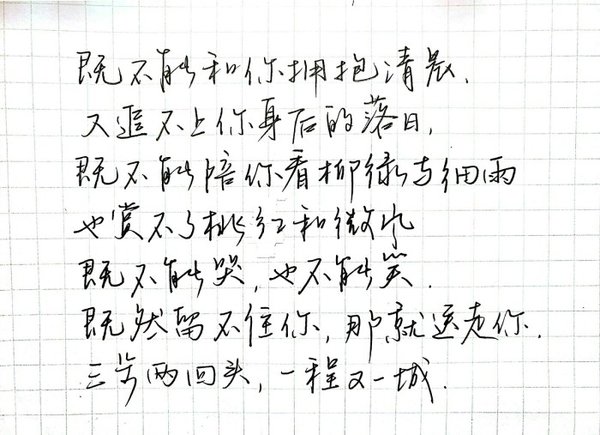 既不能和你拥抱清晨.
又追不上你身后的落日,
既不能陪你看柳绿与细雨
也赏不了桃红和微风
既不能哭,也不能笑.
既然留不住你,那就送走你.
三步两回头,一程又一城.